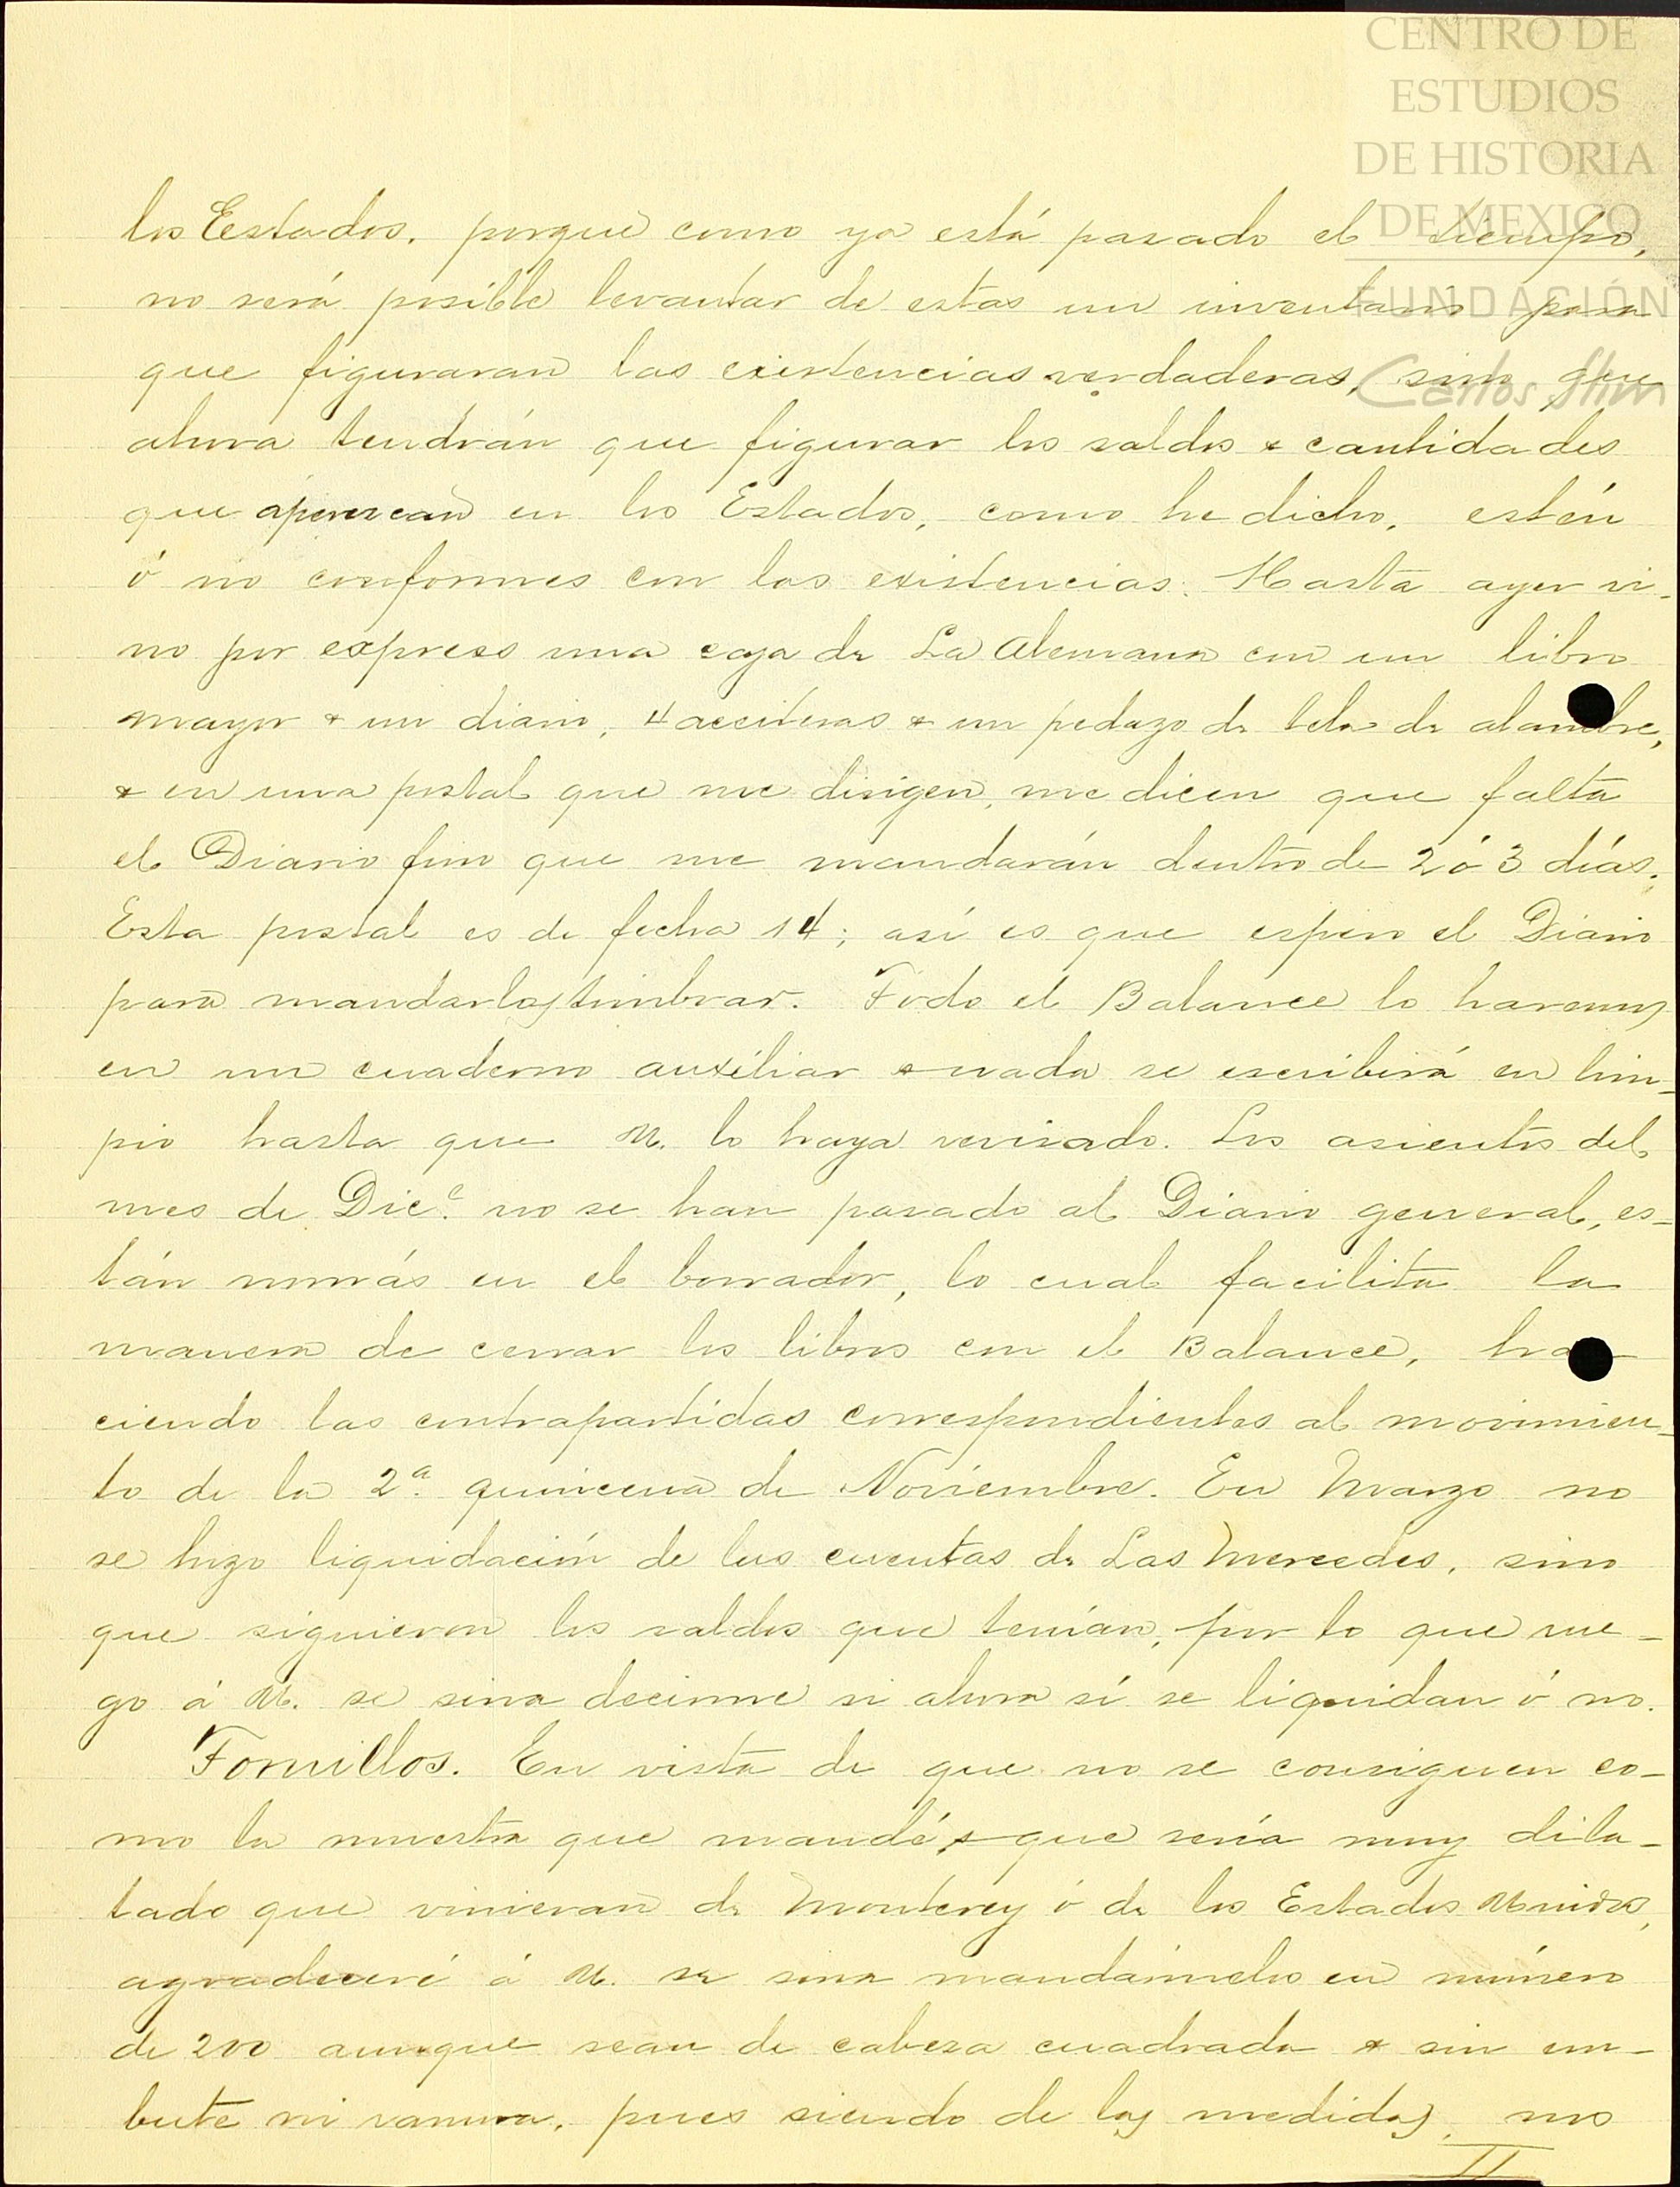 CENTRO DE
ESTUDIOS
DE HISTORIA
DE MEXICO
FUNDACIÓN
Carlos Slim
los Estados, porque como ya está pasado el tiempo,
no será posible levantar de estas un inventario para
que figuraran las existencias verdaderas, sino que
ahora tendrán que figurar los saldos & cantidades
que aparezcan en los Estados, como he dicho, estén
ó no conformes con las existencias. Hasta ayer vi-
no por express una caja de La Alemana con un libro
mayor & un diario, 4 aceiteras & un pedazo de tela de alambre,
& en una postal que me dirigen, me dicen que falta
el Diario fino que me mandarán dentro de 2 ó 3 días.
Esta postal es de fecha 14; así es que espero el Diario
para mandarlos timbrar. Todo el Balance lo haremos
en un cuaderno auxiliar & nada se escribirá en lim-
pio hasta que U. lo haya revisado. Los asientos del
mes de Dic.e no se han pasado al Diario general, es-
tán nomás en el borrador, lo cual facilita la
manera de cerrar los libros con el Balance, ha-
ciendo las contrapartidas correspondientes al movimien-
to de la 2.a quincena de Noviembre. En Marzo no
se hizo liquidación de las cuentas de Las Mercedes, sino
que siguieron los saldos que tenían, por lo que rue-
go á U. se sirva decirme si ahora sí se liquidan ó no.
Tornillos. En vista de que no se consiguen co-
mo la muestra que mandé, & que sería muy dila-
tado que vinieran de Monterey ó de los Estados Unidos,
agradeceré á U. se sirva mandármelos en número
de 200 aunque sean de cabeza cuadrada & sin em-
bute ni ranura, pues siendo de las medidas, nos
II